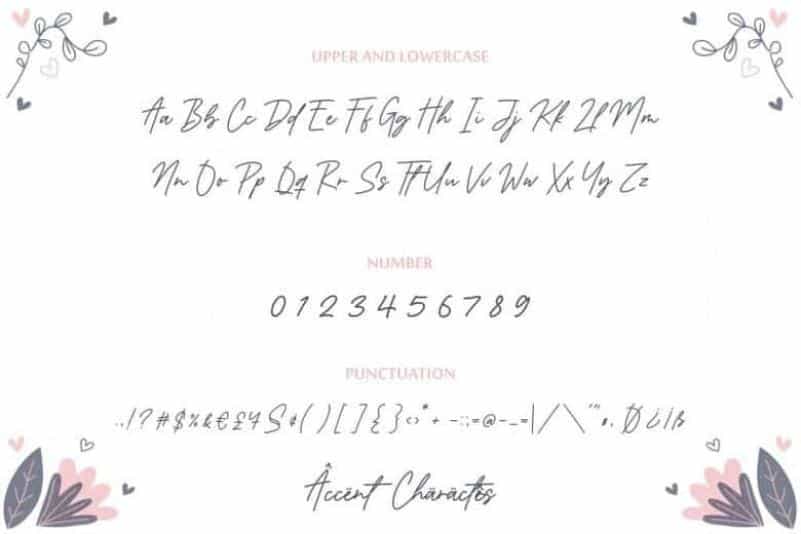 UPPER AND LOWERCASE
Aa Bb Cc Dd Ee Ff Gg Hh Ii Jj Kk Ll Mm
Nn Oo Pp Qq Rr Ss Tt Uu Vv Ww Xx Yy Zz
NUMBER
0 1 2 3 4 5 6 7 8 9
PUNCTUATION
.,!?#$%&€£¥§¢()[]{}<>*+-:;=@-_=|/\'"
Âccënt Chäräctês